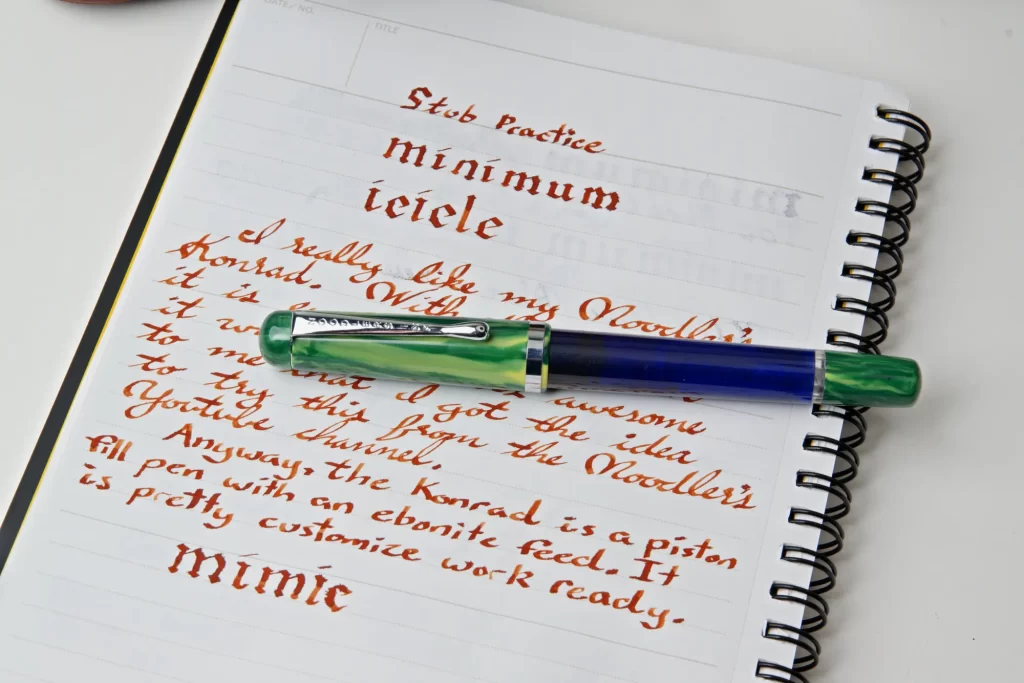 DATE / NO.
TITLE
Stub Practice
minimum
icicle
I really like my Noodler's
Konrad. With
it is
it
to me that awesome
to try this I got the idea
Youtube channel. from the Noodler's
Anyway, the Konrad is a piston
fill pen with an ebonite feed. It
is pretty customize work ready.
mimic